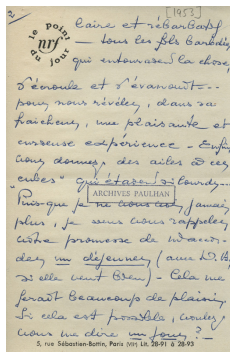 2
[1953]
le point
nrf
du jour
baire et rébarbatif
— tous les fils barbelés,
qui entouraient la chose,
s'écroule et s'évanouit —
pour nous révéler, dans sa
fraîcheur, une plaisante et
curieuse expérience — Enfin
vous donnez des ailes à ces
cubes" qui étaient si lourds —
Puis-que je ne vous vois, jamais
plus, je veux vous rappeler
votre promesse de
déjeuner
si elle veut bien) — Cela me
ferait beaucoup de plaisir,
Si cela est possible, voulez-
vous me dire un jour ? —
ARCHIVES PAULHAN
5, rue Sébastien-Bottin, Paris (VIIe) Lit. 28-91 à 28-93